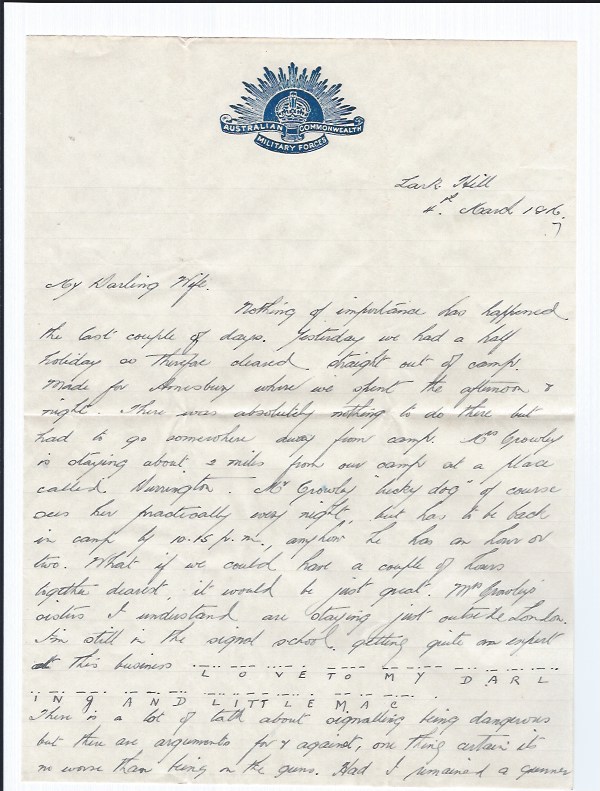 AUSTRALIAN COMMONWEALTH
MILITARY FORCES
Lark Hill
4th March 1916.
7
My Darling Wife.
Nothing of importance has happened
the last couple of days. Yesterday we had a half
holiday so therefore cleared straight out of camp.
Made for Amesbury where we spent the afternoon &
night. There was absolutely nothing to do there but
had to go somewhere away from camp. Mrs Growley
is staying about 2 miles from our camp at a place
called Durrington. Mr Growley "lucky dog" of course
sees her practically every night, but has to be back
in camp by 10.15 p.m., anyhow he has an hour or
two. What if we could have a couple of hours
together dearest, it would be just great. Mrs Growley's
sisters I understand are staying just outside London.
I'm still in the signal school, getting quite an expert
at this business
L O V E T O M Y D A R L
I N G A N D L I T T L E M A C .
There is a lot of talk about signalling being dangerous
but there are arguments for & against, one thing certain its
no worse than being on the guns. Had I remained a gunner